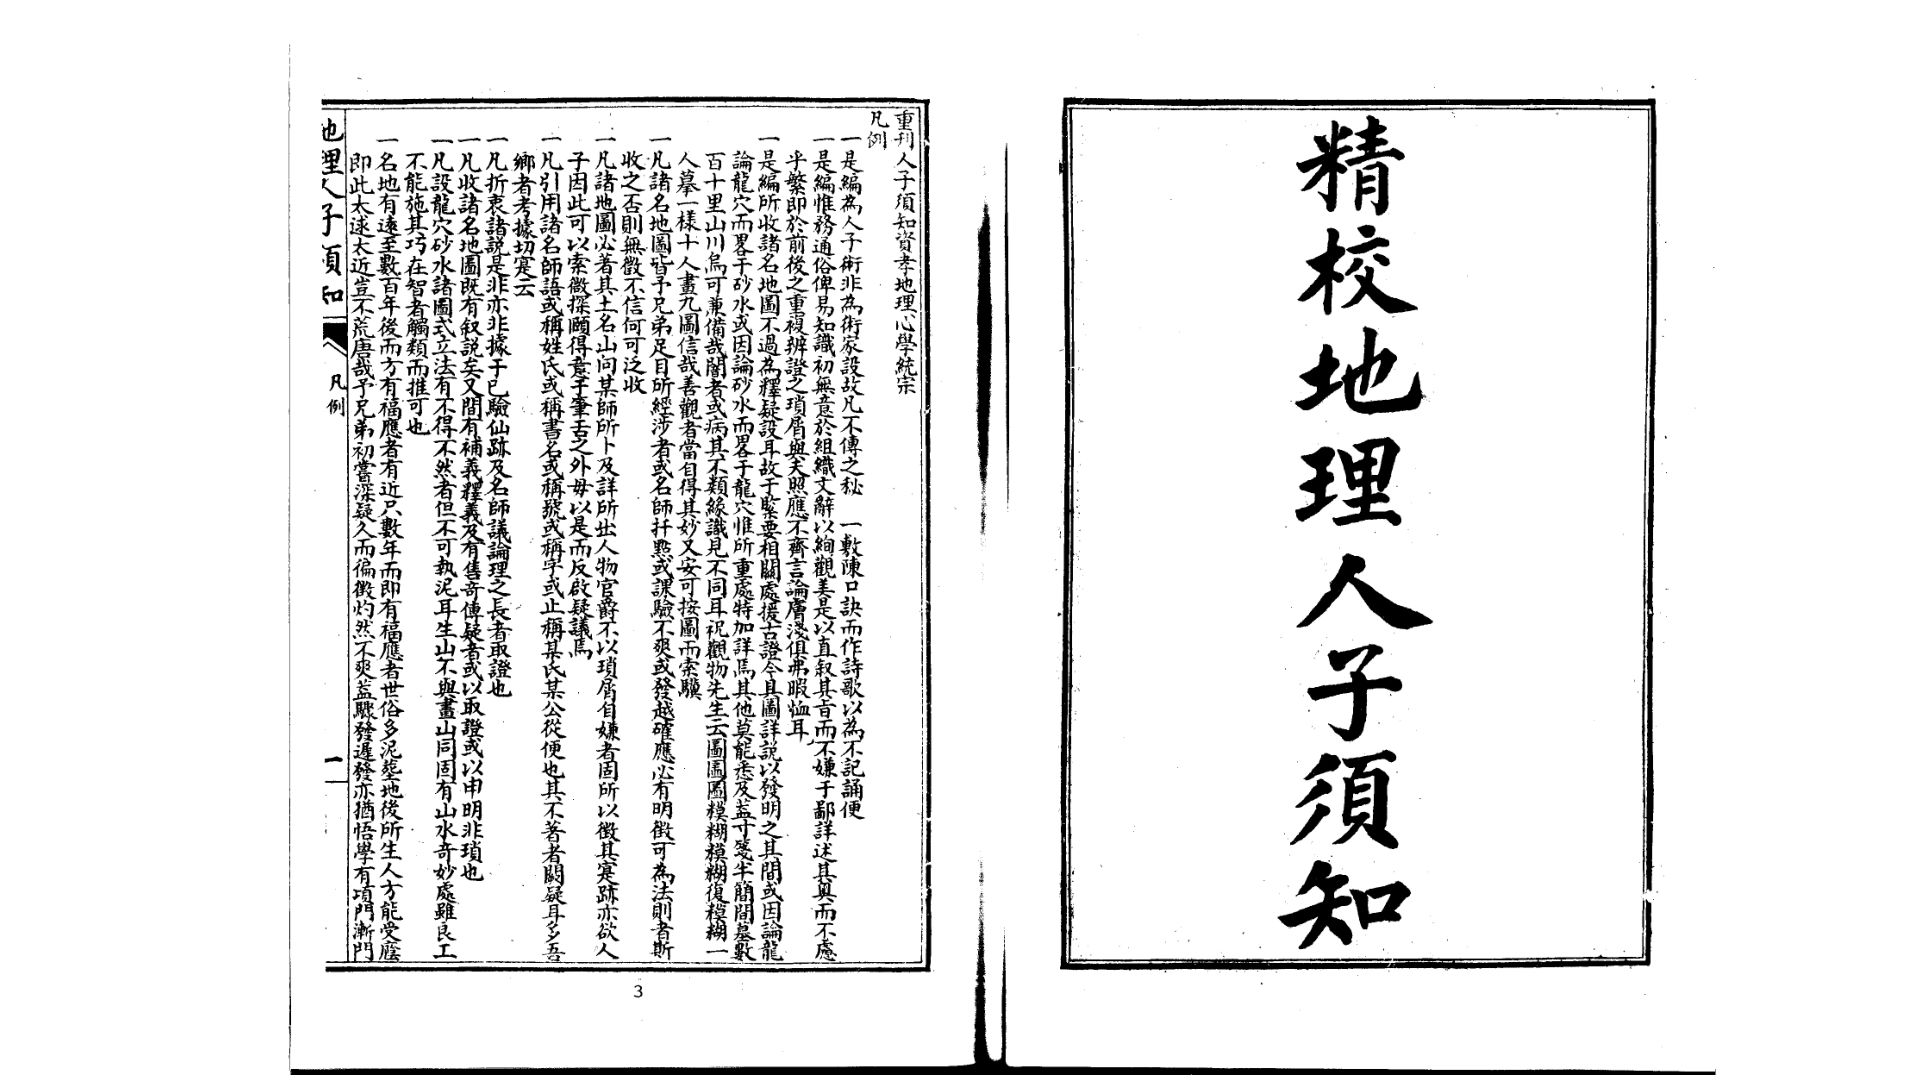 精校地理人子須知
重刊人子須知資孝地理心學統宗
凡例
一是編為人子術非為術家設故凡不傳之秘　一敷陳口訣而作詩歌以為不記誦便
一是編惟務通俗俾易知識初無意於組織文辭以絢觀美是以直叙其旨而不嫌于鄙詳述其奧而不慮
乎繁即於前後之重複辨證之瑣屑與夫照應不齊言論膚淺俱弗暇恤耳
一是編所收諸名地圖不過為釋疑設耳故于緊要相關處援古證今具圖詳說以發明之其間或因論龍
論龍穴而畧于砂水或因論砂水而畧于龍穴惟所重處特加詳焉其他莫能悉及蓋寸箋半簡間墓數
百十里山川烏可兼備哉閽者或病其不類緣識見不同耳祝觀物先生云圖圖圖糢糊糢糊復糢糊一
人摹一樣十人畫九圖信哉善觀者當自得其妙又安可按圖而索驥
一凡諸名地圖皆予兄弟足目所經涉者或名師扦點或課驗不爽或發越確應必有明徵可為法則者斯
收之否則無徵不信何可泛收
一凡諸地圖必著其土名山向某師所卜及詳所出人物官爵不以瑣屑自嫌者固所以徵其寔跡亦欲人
子因此可以索微探頤得意于筆舌之外毋以是而反啟疑議焉
一凡引用諸名師語或稱姓氏或稱書名或稱號或稱字或止稱某氏某公從便也其不著者闕疑耳多吾
鄉者考據切寔云
一凡折衷諸說是非亦非據于已驗仙跡及名師議論理之長者取證也
一凡收諸名地圖既有叙說矣又間有補義釋義及有售奇傳疑者或以取證或以申明非瑣也
一凡設龍穴砂水諸圖式立法有不得不然者但不可執泥耳生山不與畫山同固有山水奇妙處雖良工
不能施其巧在智者觸類而推可也
一名地有遠至數百年後而方有福應者有近只數年而即有福應者世俗多泥塟地後所生人方能受廕
即此太遠太近豈不荒唐哉予兄弟初嘗深疑久而徧徵灼然不爽蓋驟發遲發亦猶悟學有項門漸門
地理人子須知
凡例
一
3